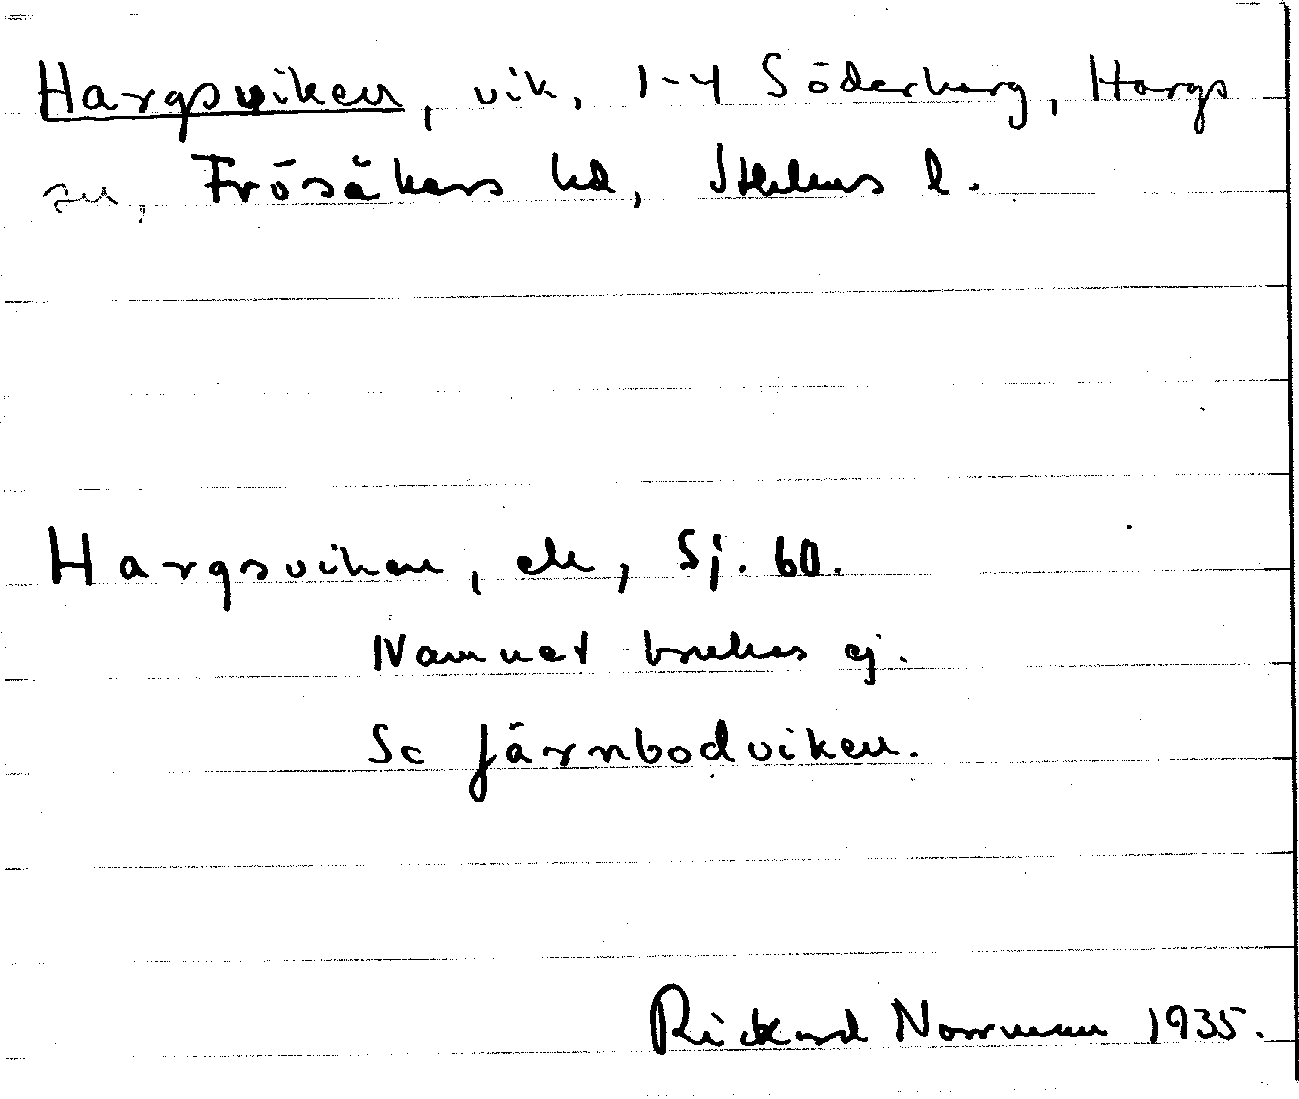 Hargsviken, vik, 1-4 Söderberg, Hargs
sn, Frösåkers hd, Sthlms l.
Hargsviken, ek, Sj. 60.
Namnet brukas ej.
Se Järnbodviken.
Rickard Norrman 1935.